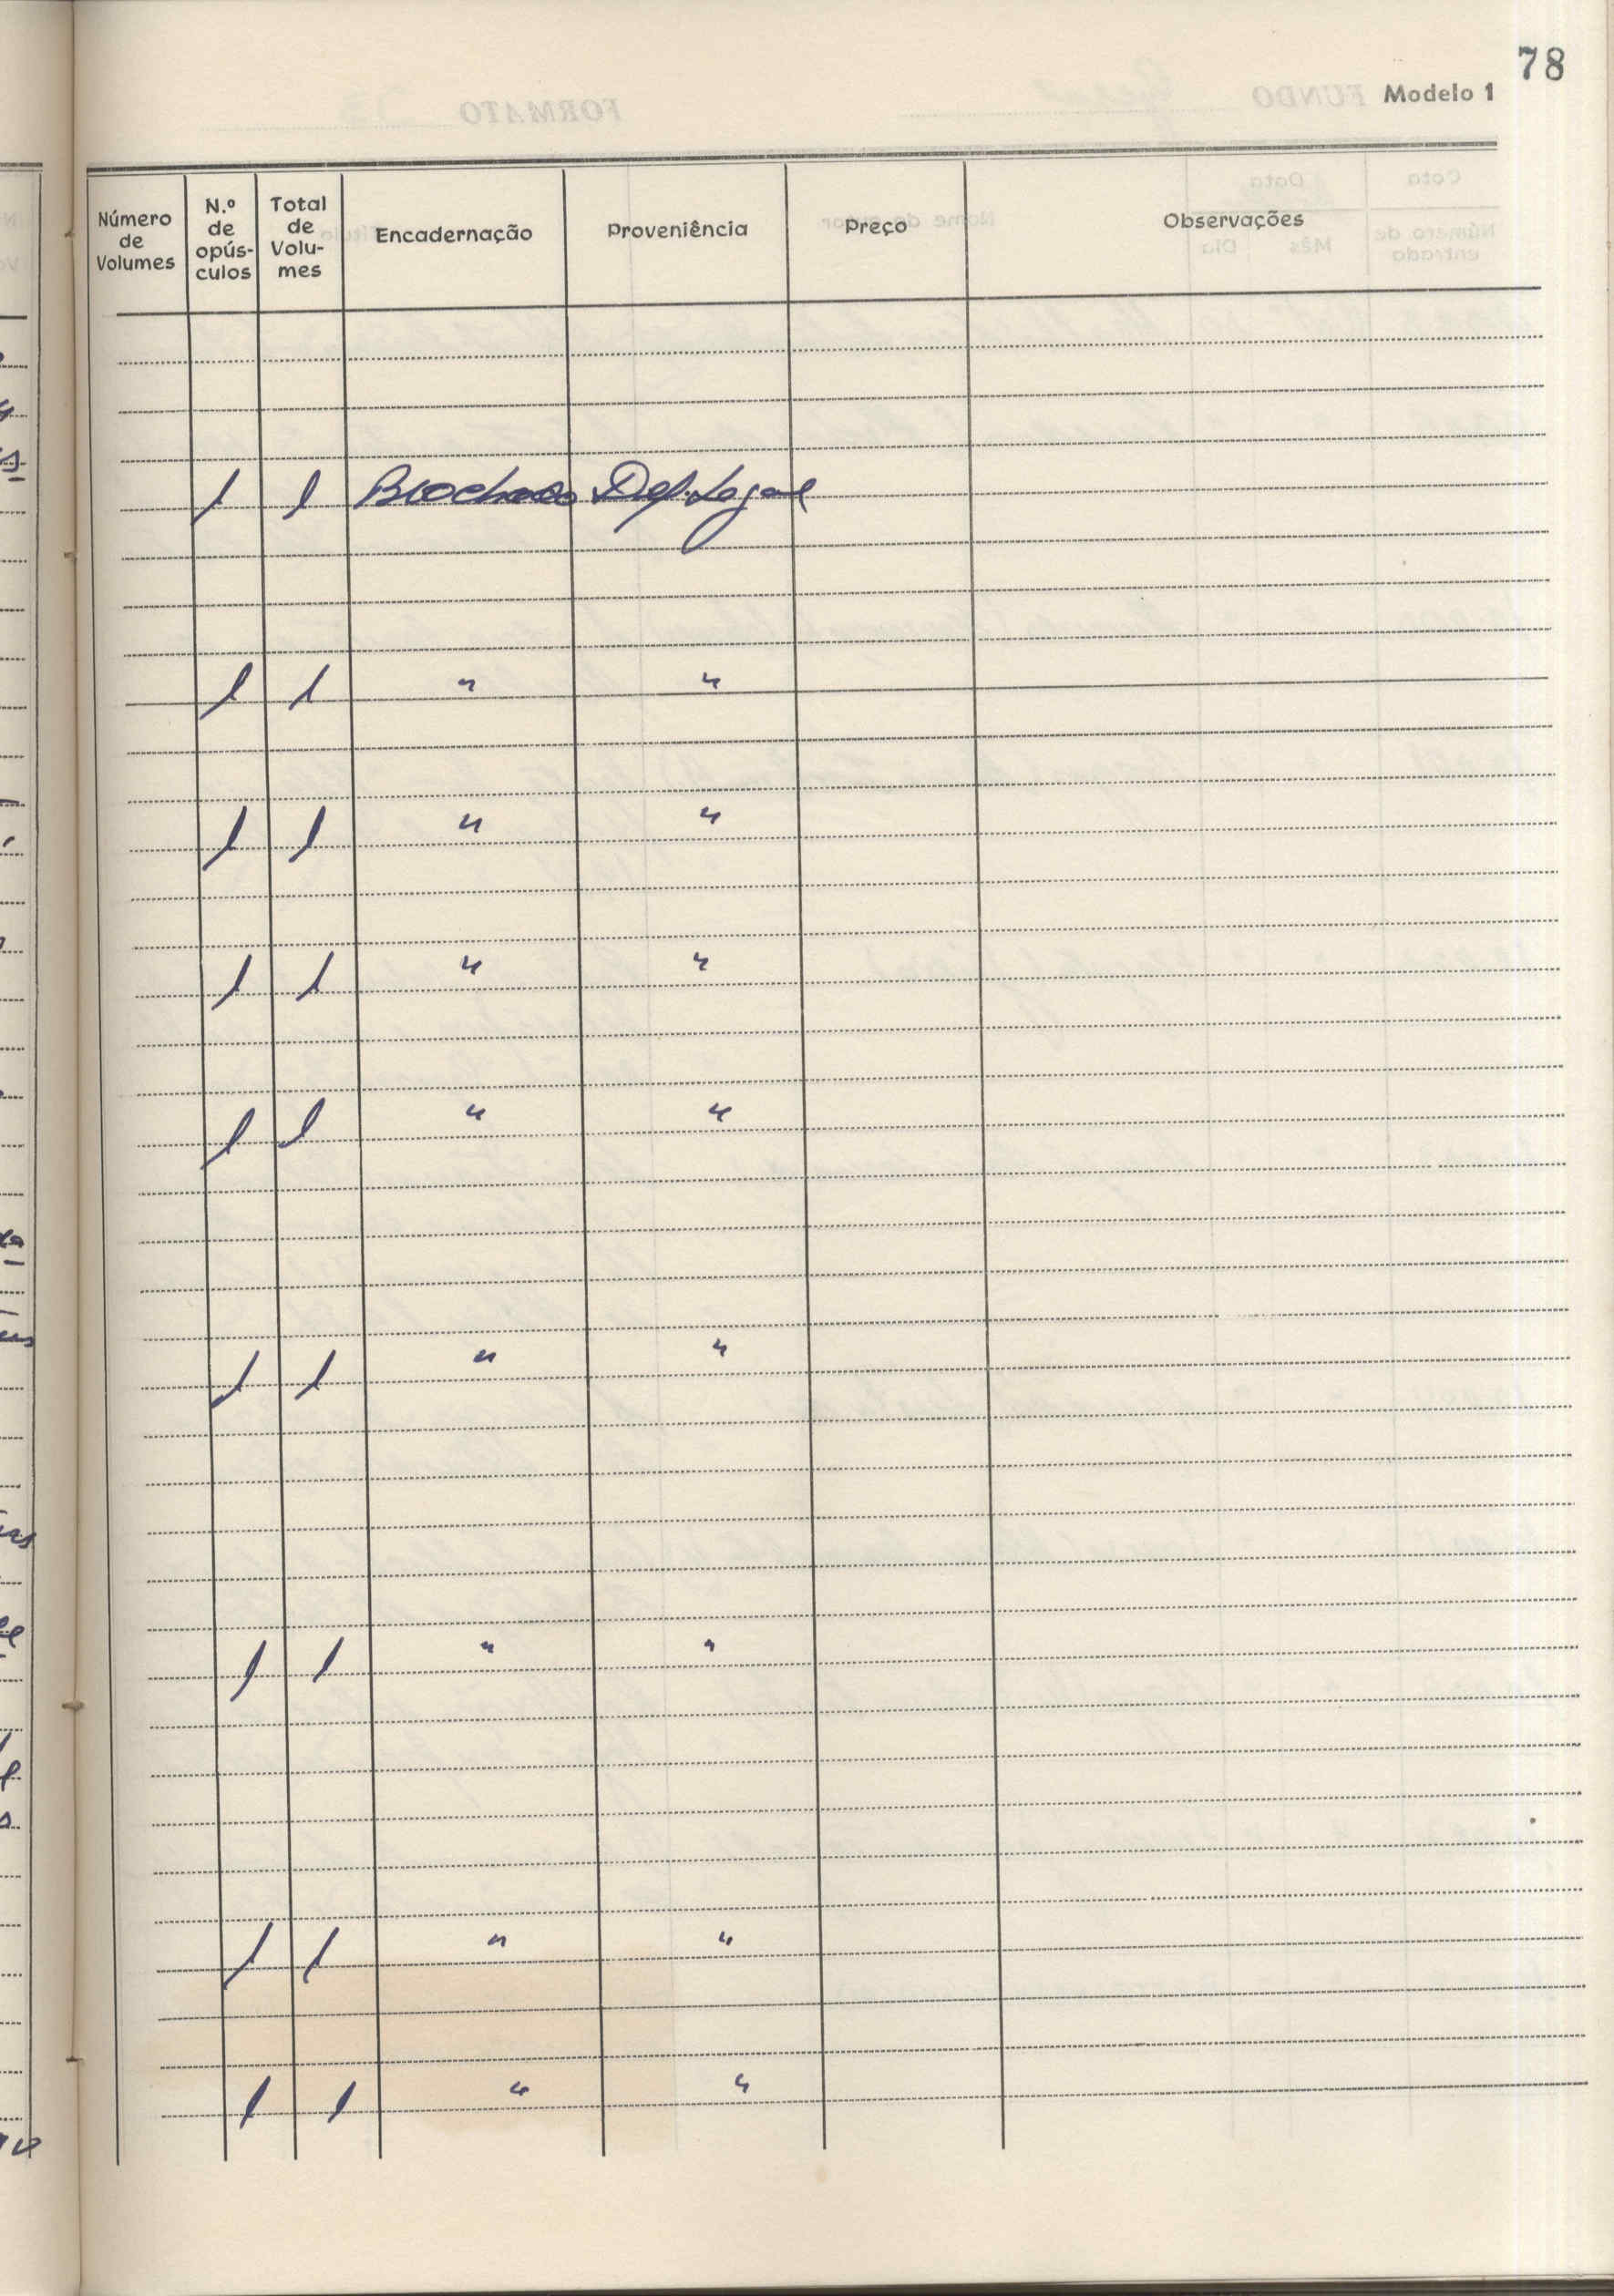 78
Modelo 1
Número de Volumes | N.º de opús-culos | Total de Volu-mes | Encadernação | Proveniência | Preço | Observações
1 1 Brochado Dep. Legal
1 1 " "
1 1 " "
1 1 " "
1 1 " "
1 1 " "
1 1 " "
1 1 " "
1 1 " "